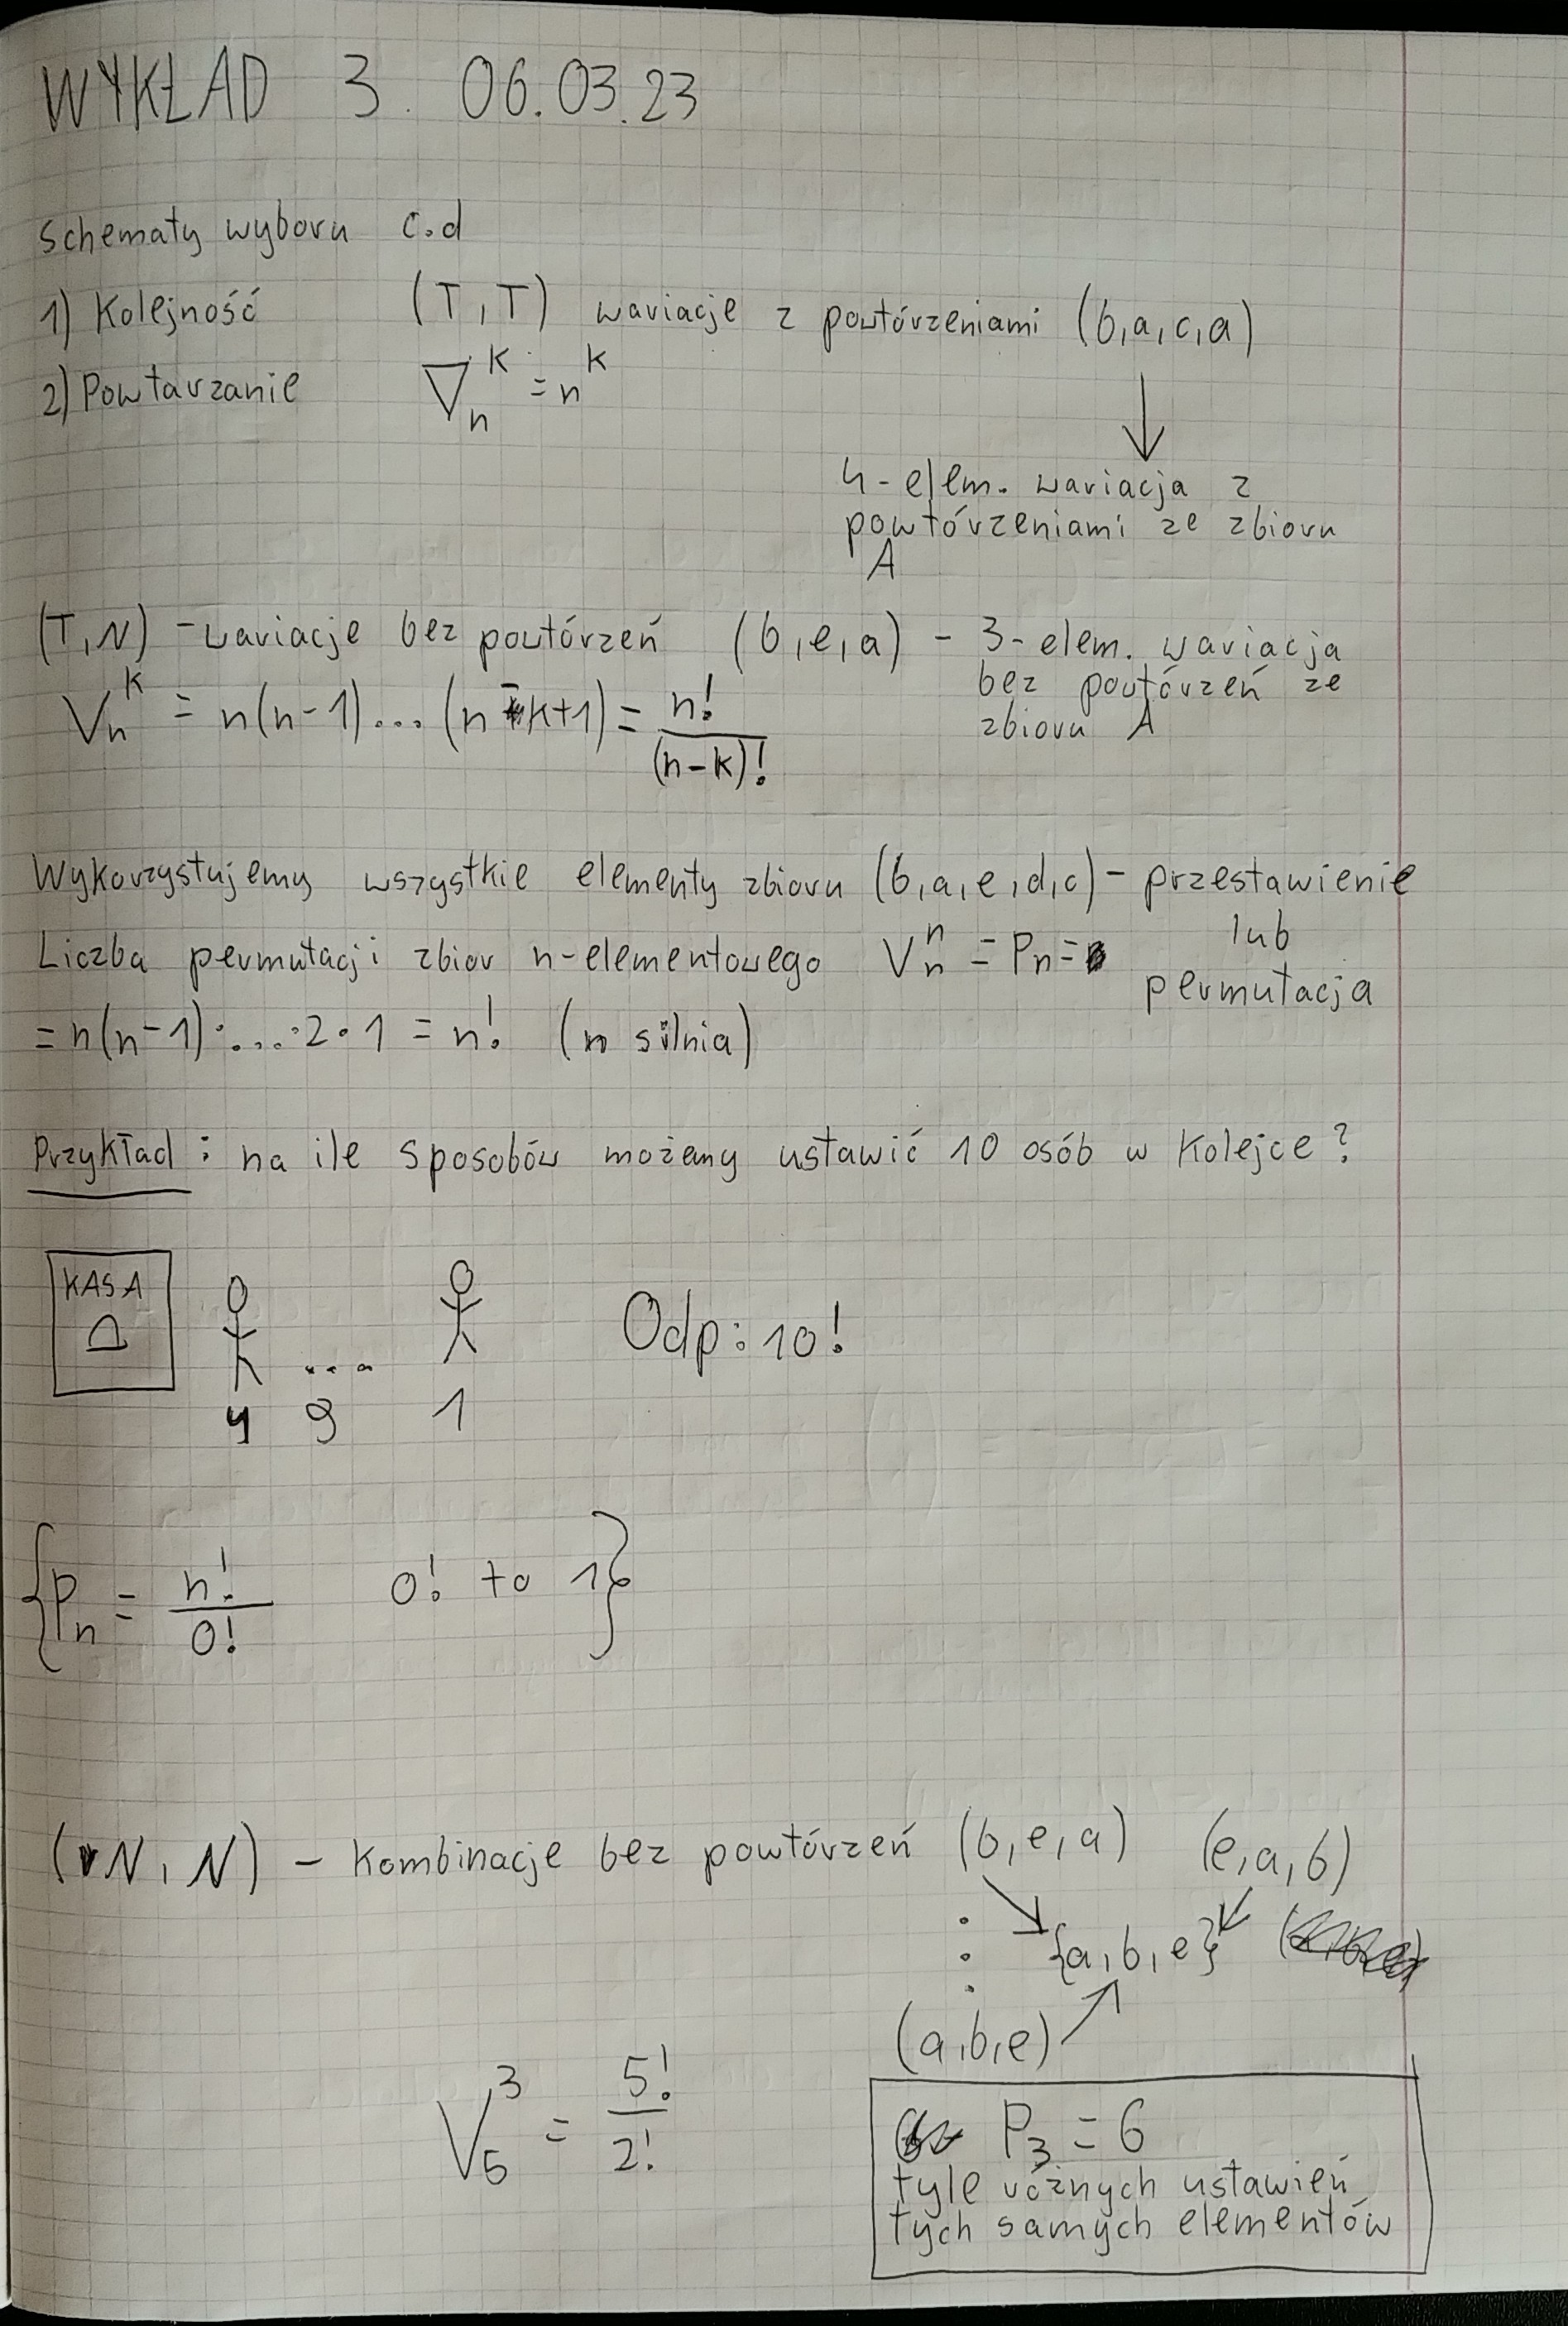 WYKŁAD 3. 06.03.23
Schematy wyboru c.d
1) Kolejność (T,T) wariacje z powtórzeniami (b,a,c,a)
2) Powtarzanie V̅ₙᵏ = nᵏ
4-elem. wariacja z
powtórzeniami ze zbioru
A
(T,N) - wariacje bez powtórzeń (b,e,a) - 3-elem. wariacja
bez powtórzeń ze
zbioru A
Vₙᵏ = n(n-1)...(n-k+1) = n!/(n-k)!
Wykorzystujemy wszystkie elementy zbioru (b,a,e,d,c) - przestawienie
lub
permutacja
Liczba permutacji zbior n-elementowego Vₙⁿ = Pₙ =
= n(n-1)·...·2·1 = n! (n silnia)
Przykład: na ile sposobów możemy ustawić 10 osób w kolejce?
KASA
... Odp: 10!
9 1
{Pₙ = n!/0! 0! to 1}
(N,N) - kombinacje bez powtórzeń (b,e,a) (e,a,b)
{a,b,e}
(a,b,e)
V₅³ = 5!/2!
P₃ = 6
tyle różnych ustawień
tych samych elementów